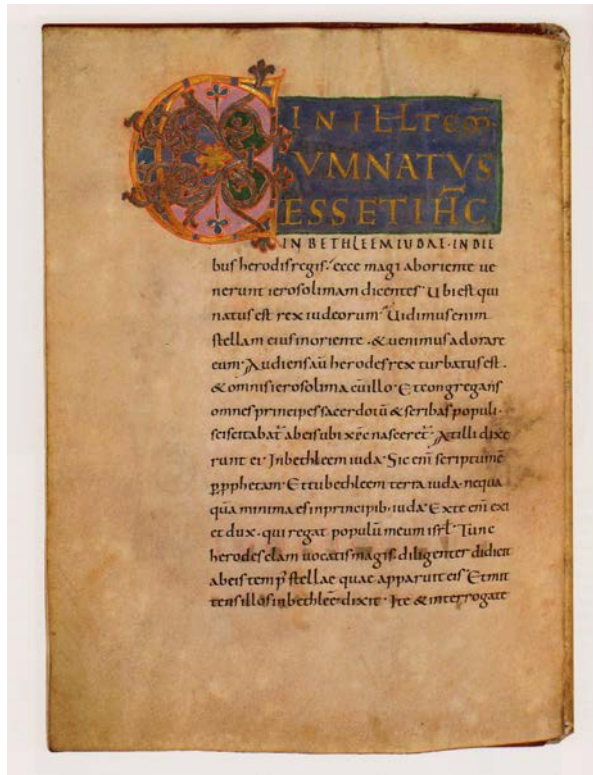 IN ILLTEM̅
CUMNATVS
ESSETIH̅C
INBETHLEEMIUDAE·INDIE
bus herodis regis. ecce magi aboriente ue
nerunt ierosolimam dicentes· Ubi est qui
natus est rex iudeorum· Uidimus enim
stellam eius inoriente·&uenimus adorare
eum· Audiens aū herodes rex turbatus est·
&omnis ierosolima cūillo· Et congregans
omnes principes sacerdotū & scribas populi·
sciscitabat̄ abeis ubi xp̄c nasceret̄· At illi dixe
runt ei· Inbethleem iuda· Sic enī scriptum ē
p̱pphetam· Et tu bethleem terra iuda· nequa
quā minima es inprincipib· iuda· Ex te enī exi
et dux· qui regat populū meum isrl̄· Tunc
herodes clam uocatis magis. diligenter didicit
abeis temp̄ stellae quae apparuit eis· Et mit
tens illos inbethleē· dixit· Ite & interrogate